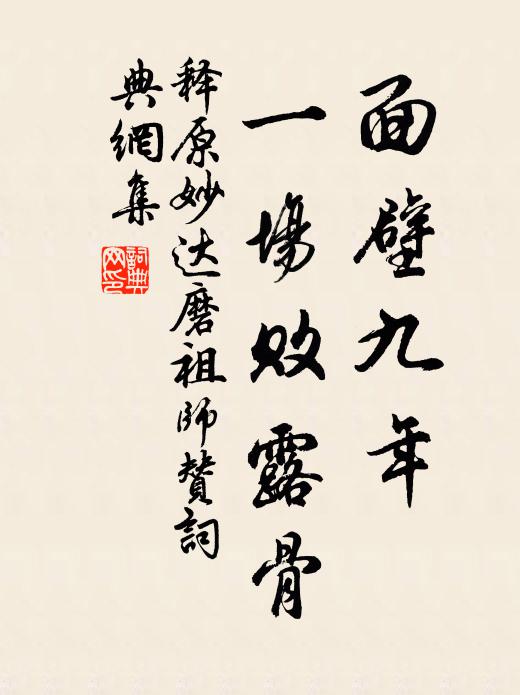 面壁九年
一場敗露骨
释原妙达磨祖師贊詞
典網集
詞典
网印